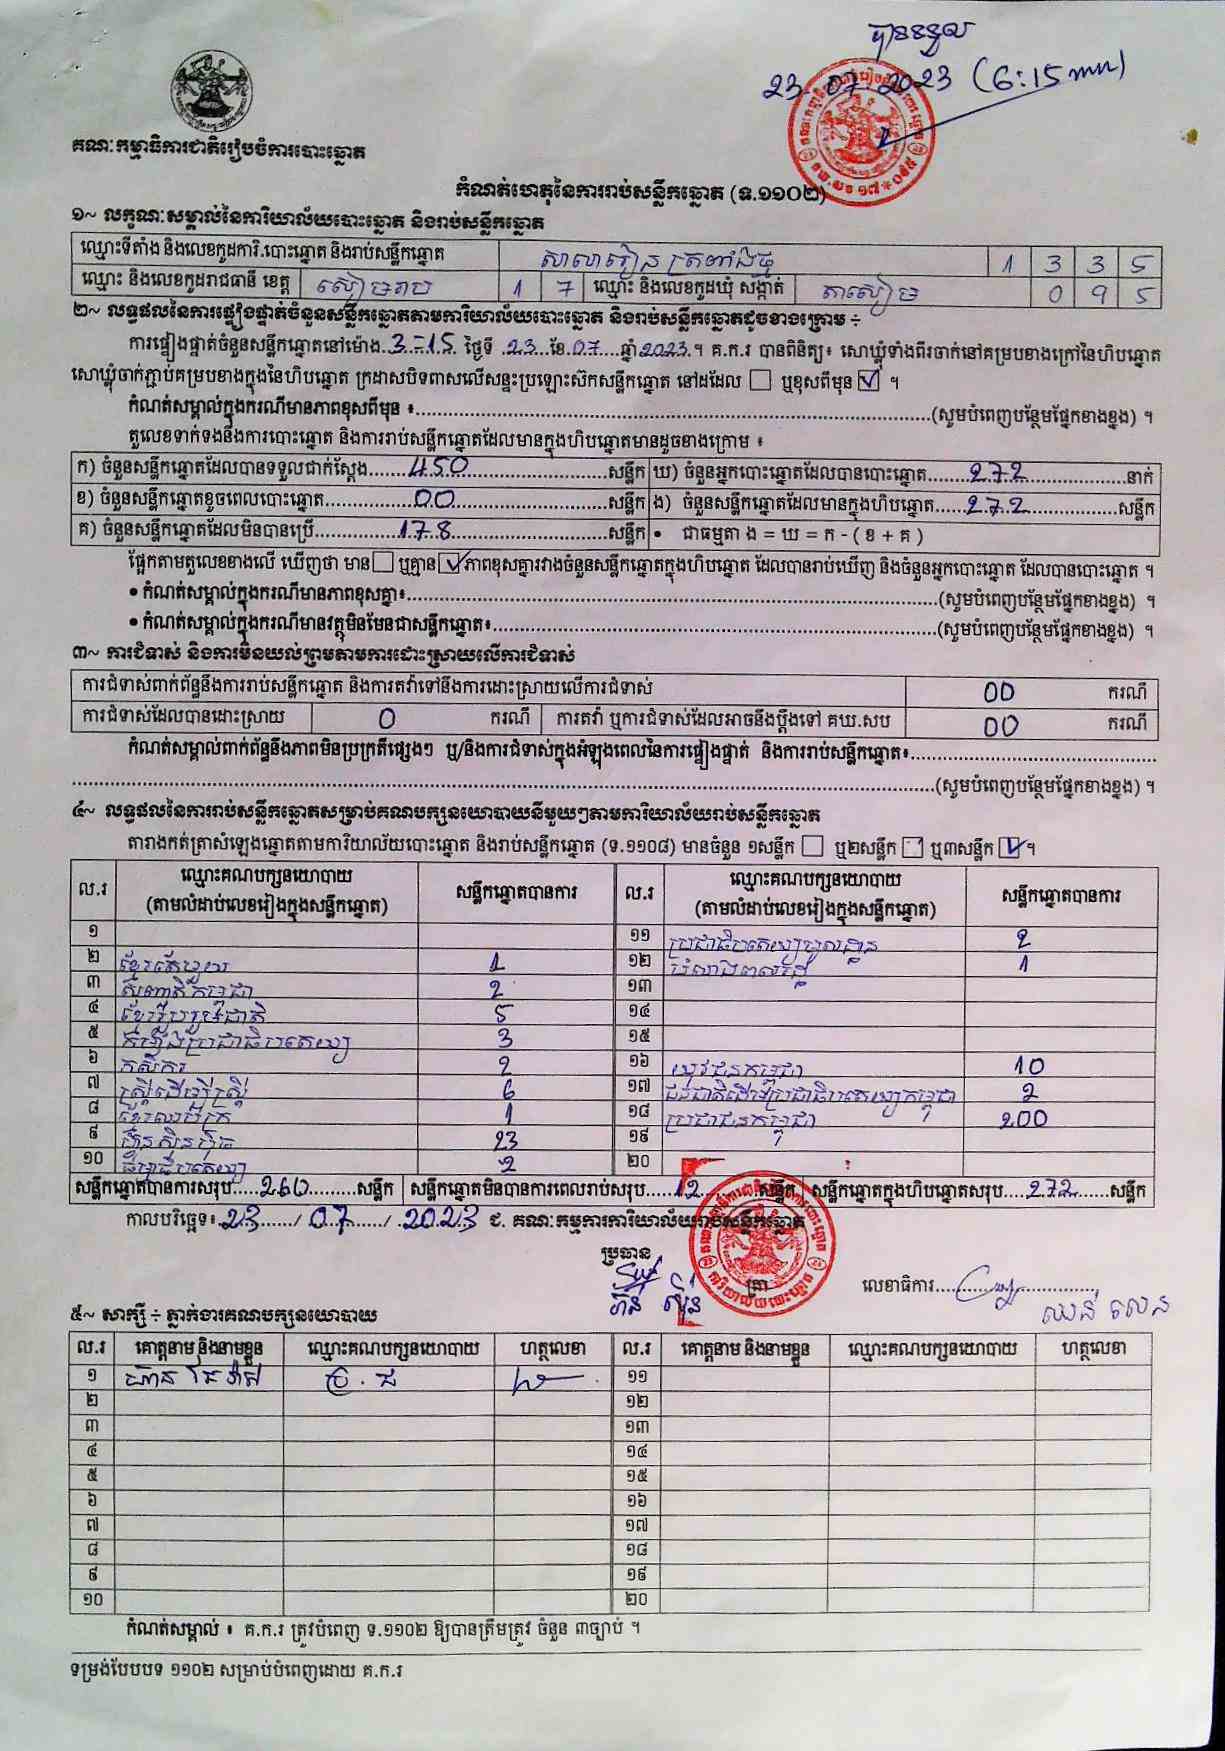 បានទទួល
23.07.2023 (6:15 mn)
គណៈកម្មាធិការជាតិរៀបចំការបោះឆ្នោត
កំណត់ហេតុនៃការរាប់សន្លឹកឆ្នោត (ទ.១១០២)
១~ លក្ខណៈសម្គាល់នៃការិយាល័យបោះឆ្នោត និងរាប់សន្លឹកឆ្នោត
ឈ្មោះទីតាំង និងលេខកូដការិ.បោះឆ្នោត និងរាប់សន្លឹកឆ្នោត សាលារៀន ត្រពាំងថ្ម 1 3 3 5
ឈ្មោះ និងលេខកូដរាជធានី ខេត្ត សៀមរាប 1 7 ឈ្មោះ និងលេខកូដឃុំ សង្កាត់ តាសៀម 0 9 5
២~ លទ្ធផលនៃការផ្ទៀងផ្ទាត់ចំនួនសន្លឹកឆ្នោតតាមការិយាល័យបោះឆ្នោត និងរាប់សន្លឹកឆ្នោតដូចខាងក្រោម ÷
ការផ្ទៀងផ្ទាត់ចំនួនសន្លឹកឆ្នោតនៅម៉ោង 3-15 ថ្ងៃទី 23 ខែ 07 ឆ្នាំ 2023 ។ គ.ក.រ បានពិនិត្យ៖ សោឃ្លុំទាំងពីរចាក់នៅគម្របខាងក្រៅនៃហិបឆ្នោត
សោឃ្លុំចាក់ភ្ជាប់គម្របខាងក្នុងនៃហិបឆ្នោត ក្រដាសបិទពាសលើសន្ទះប្រឡោះស៊កសន្លឹកឆ្នោត នៅដដែល ☐ ឬខុសពីមុន ☑ ។
កំណត់សម្គាល់ក្នុងករណីមានភាពខុសពីមុន ៖ (សូមបំពេញបន្ថែមផ្នែកខាងខ្នង) ។
តួលេខទាក់ទងនឹងការបោះឆ្នោត និងការរាប់សន្លឹកឆ្នោតដែលមានក្នុងហិបឆ្នោតមានដូចខាងក្រោម ៖
ក) ចំនួនសន្លឹកឆ្នោតដែលបានទទួលជាក់ស្តែង 450 សន្លឹក ឃ) ចំនួនអ្នកបោះឆ្នោតដែលបានបោះឆ្នោត 272 នាក់
ខ) ចំនួនសន្លឹកឆ្នោតខូចពេលបោះឆ្នោត 00 សន្លឹក ង) ចំនួនសន្លឹកឆ្នោតដែលមានក្នុងហិបឆ្នោត 272 សន្លឹក
គ) ចំនួនសន្លឹកឆ្នោតដែលមិនបានប្រើ 178 សន្លឹក • ជាធម្មតា ង = ឃ = ក - ( ខ + គ )
ផ្អែកតាមតួលេខខាងលើ ឃើញថា មាន ☐ ឬគ្មាន ☑ ភាពខុសគ្នារវាងចំនួនសន្លឹកឆ្នោតក្នុងហិបឆ្នោត ដែលបានរាប់ឃើញ និងចំនួនអ្នកបោះឆ្នោត ដែលបានបោះឆ្នោត ។
• កំណត់សម្គាល់ក្នុងករណីមានភាពខុសគ្នា៖ (សូមបំពេញបន្ថែមផ្នែកខាងខ្នង) ។
• កំណត់សម្គាល់ក្នុងករណីមានវត្ថុមិនមែនជាសន្លឹកឆ្នោត៖ (សូមបំពេញបន្ថែមផ្នែកខាងខ្នង) ។
៣~ ការជំទាស់ និងការមិនយល់ព្រមតាមការដោះស្រាយលើការជំទាស់
ការជំទាស់ពាក់ព័ន្ធនឹងការរាប់សន្លឹកឆ្នោត និងការតវ៉ាទៅនឹងការដោះស្រាយលើការជំទាស់ 00 ករណី
ការជំទាស់ដែលបានដោះស្រាយ 0 ករណី ការតវ៉ា ឬការជំទាស់ដែលអាចនឹងប្តឹងទៅ គឃ.សប 00 ករណី
កំណត់សម្គាល់ពាក់ព័ន្ធនឹងភាពមិនប្រក្រតីផ្សេងៗ ឬ/និងការជំទាស់ក្នុងអំឡុងពេលនៃការផ្ទៀងផ្ទាត់ និងការរាប់សន្លឹកឆ្នោត៖
(សូមបំពេញបន្ថែមផ្នែកខាងខ្នង) ។
៤~ លទ្ធផលនៃការរាប់សន្លឹកឆ្នោតសម្រាប់គណបក្សនយោបាយនីមួយៗតាមការិយាល័យរាប់សន្លឹកឆ្នោត
តារាងកត់ត្រាសំឡេងឆ្នោតតាមការិយាល័យបោះឆ្នោត និងរាប់សន្លឹកឆ្នោត (ទ.១១០៨) មានចំនួន ១សន្លឹក ☐ ឬ២សន្លឹក ☐ ឬ៣សន្លឹក ☑ ។
ល.រ ឈ្មោះគណបក្សនយោបាយ (តាមលំដាប់លេខរៀងក្នុងសន្លឹកឆ្នោត) សន្លឹកឆ្នោតបានការ ល.រ ឈ្មោះគណបក្សនយោបាយ (តាមលំដាប់លេខរៀងក្នុងសន្លឹកឆ្នោត) សន្លឹកឆ្នោតបានការ
១ ១១ ប្រជាធិបតេយ្យមូលដ្ឋាន 2
២ ខ្មែរតែមួយ 1 ១២ បំលាស់ពលរដ្ឋ 1
៣ សញ្ជាតិកម្ពុជា 2 ១៣
៤ ខ្មែររួបរួមជាតិ 5 ១៤
៥ កម្លាំងប្រជាធិបតេយ្យ 3 ១៥
៦ កសិករ 2 ១៦ យុវជនកម្ពុជា 10
៧ ស្ត្រីដើម្បីស្ត្រី 6 ១៧ ជនជាតិដើមប្រជាធិបតេយ្យកម្ពុជា 2
៨ ខ្មែរឈប់ក្រ 1 ១៨ ប្រជាជនកម្ពុជា 200
៩ ហ៊្វុនស៊ិនប៉ិច 23 ១៩
១០ ធម្មាធិបតេយ្យ 2 ២០
សន្លឹកឆ្នោតបានការសរុប 260 សន្លឹក សន្លឹកឆ្នោតមិនបានការពេលរាប់សរុប 12 សន្លឹក សន្លឹកឆ្នោតក្នុងហិបឆ្នោតសរុប 272 សន្លឹក
កាលបរិច្ឆេទ៖ 23 / 07 / 2023 ជ. គណៈកម្មការការិយាល័យរាប់សន្លឹកឆ្នោត
ប្រធាន
ត្រា លេខាធិការ
៥~ សាក្សី ÷ ភ្នាក់ងារគណបក្សនយោបាយ
ល.រ គោត្តនាម និងនាមខ្លួន ឈ្មោះគណបក្សនយោបាយ ហត្ថលេខា ល.រ គោត្តនាម និងនាមខ្លួន ឈ្មោះគណបក្សនយោបាយ ហត្ថលេខា
១ ប្រ.ជ ១១
២ ១២
៣ ១៣
៤ ១៤
៥ ១៥
៦ ១៦
៧ ១៧
៨ ១៨
៩ ១៩
១០ ២០
កំណត់សម្គាល់ ៖ គ.ក.រ ត្រូវបំពេញ ទ.១១០២ ឱ្យបានត្រឹមត្រូវ ចំនួន ៣ច្បាប់ ។
ទម្រង់បែបបទ ១១០២ សម្រាប់បំពេញដោយ គ.ក.រ